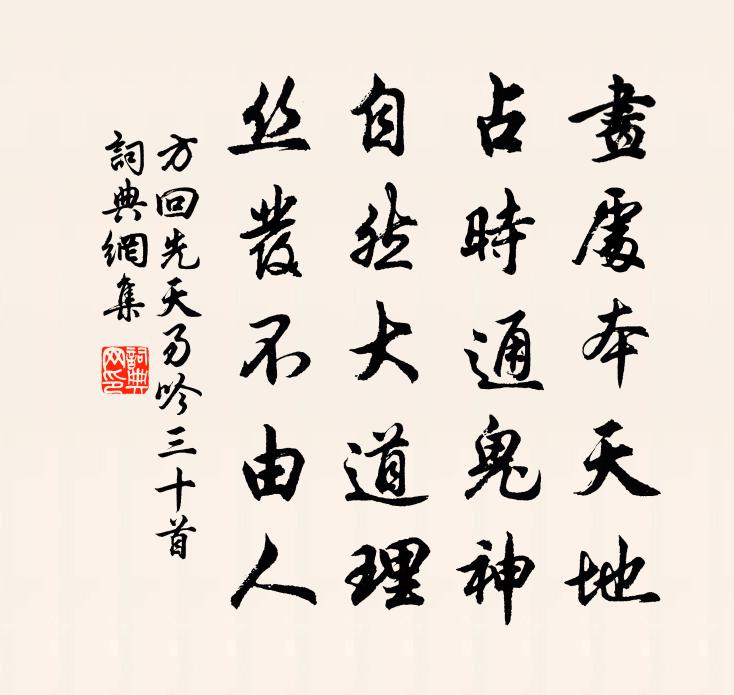 畫處本天地
占時通鬼神
自然大道理
丝發不由人
方回先天易吟三十首
詞典網集
詞典网印